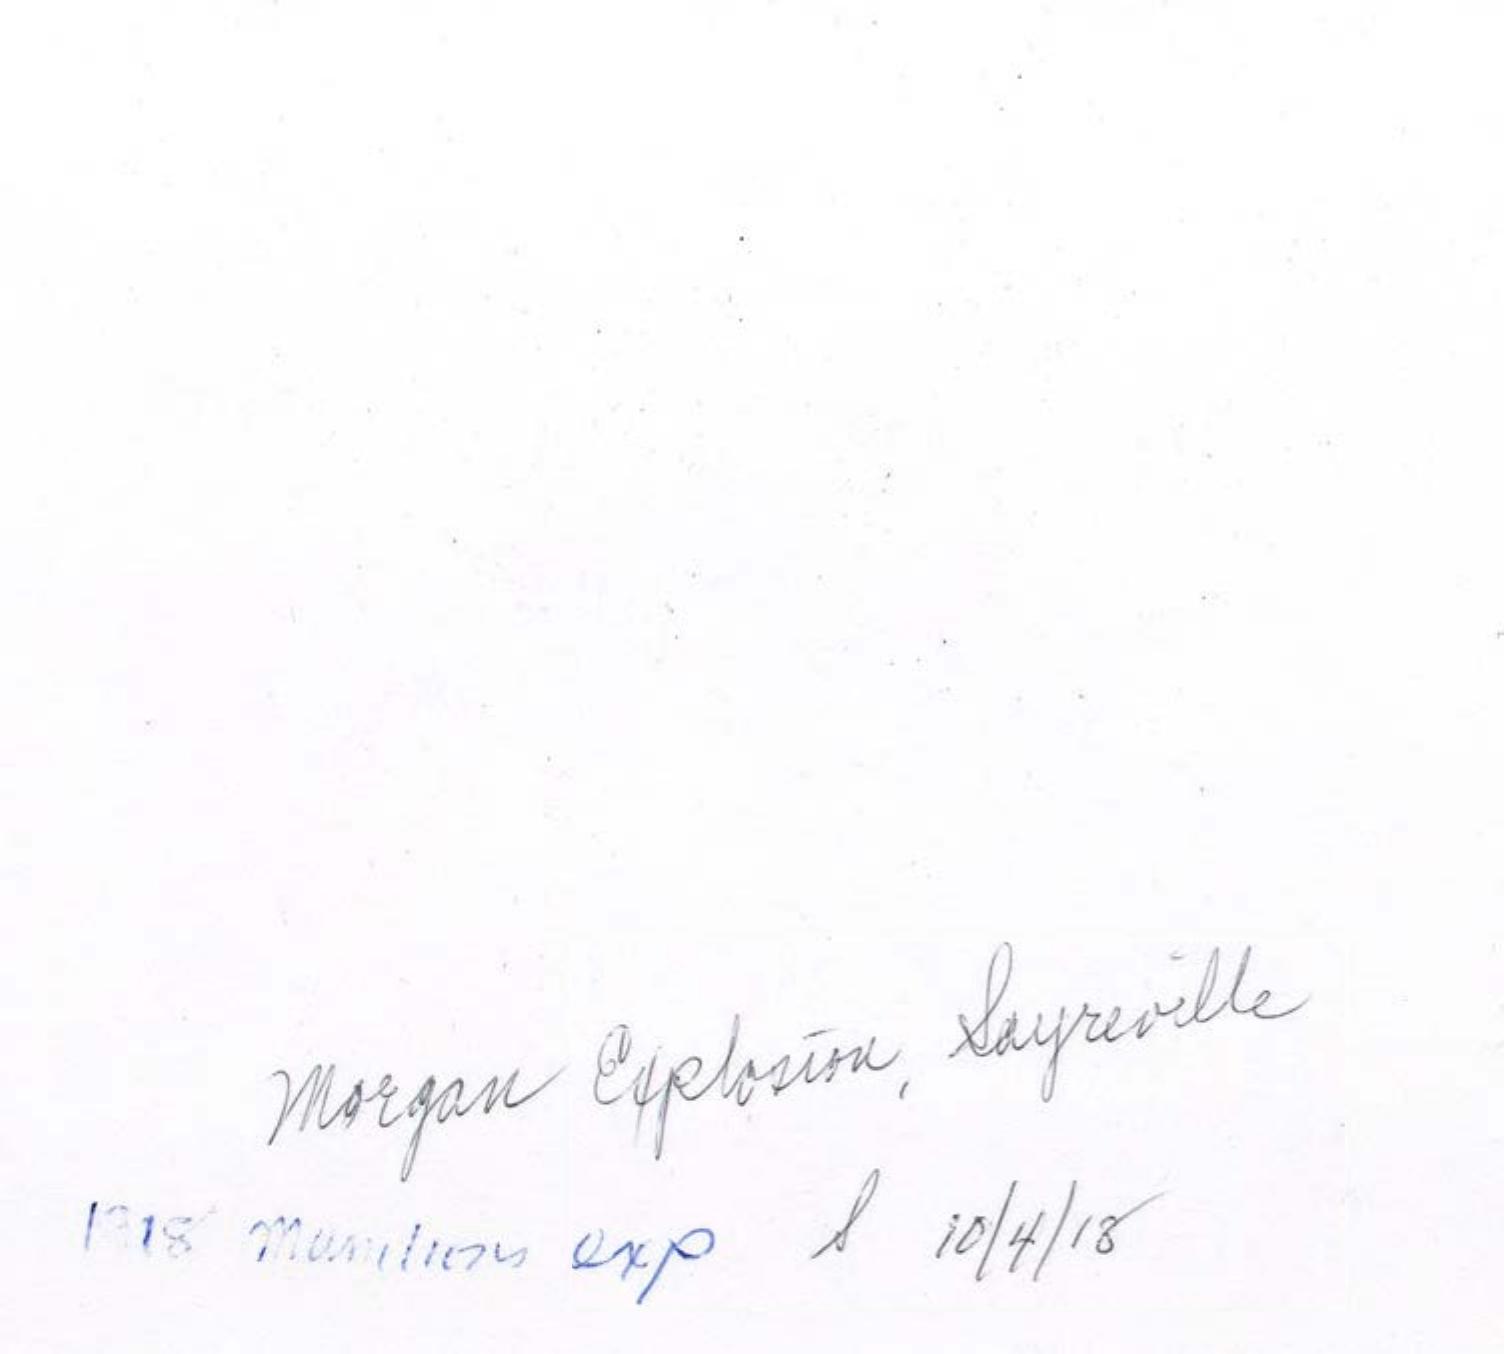 Morgan Explosion, Sayreville
1918 Munitions exp S 10/4/18